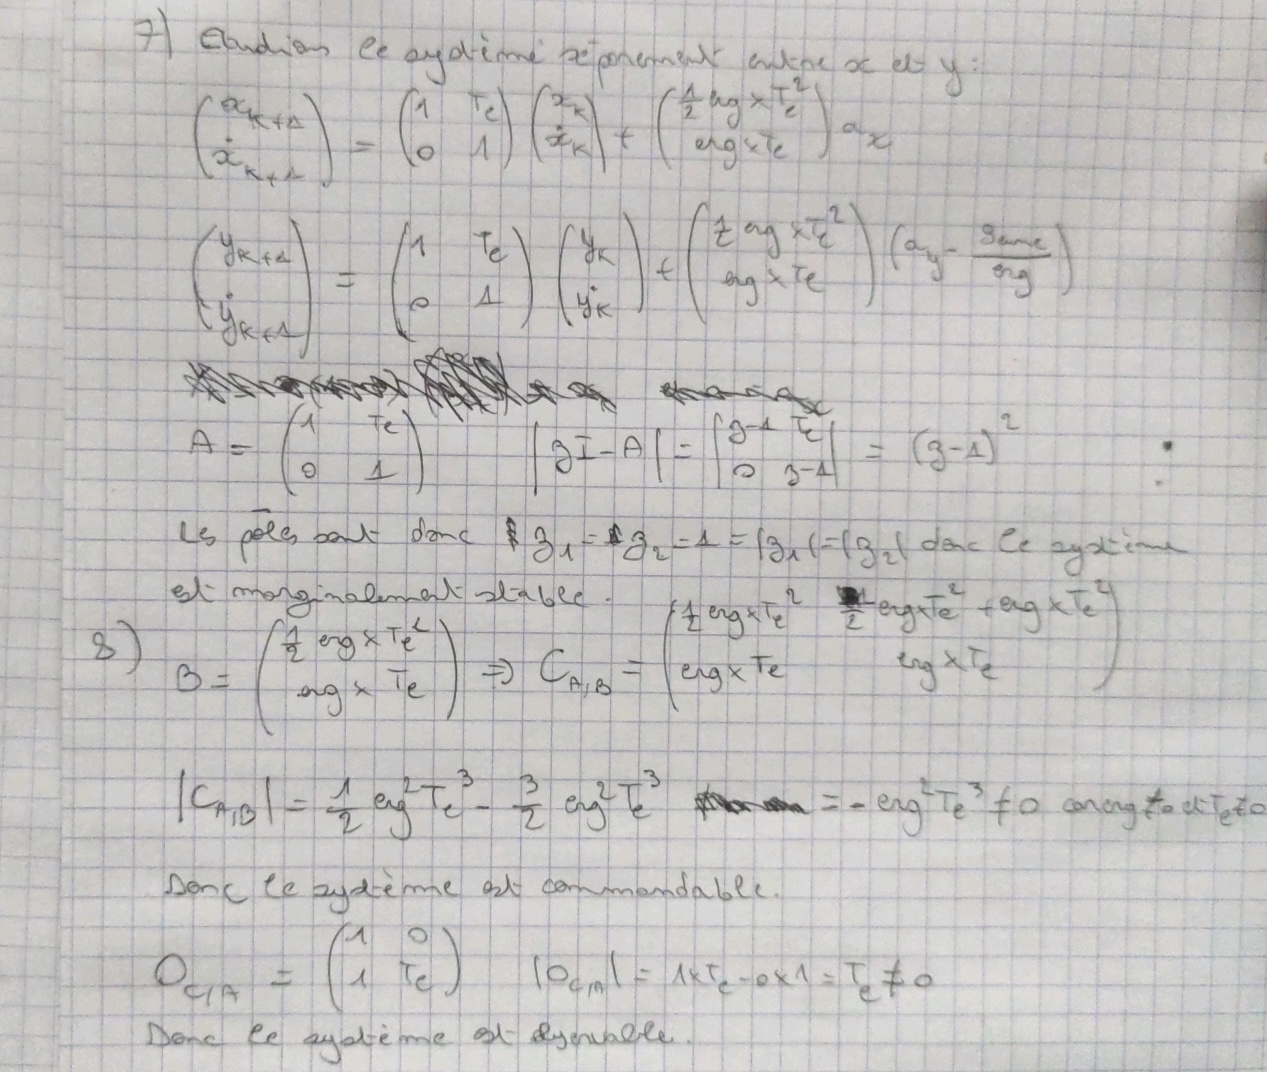 7) Etudions le système séparement entre x et y :
(x_{k+1} ; ẋ_{k+1}) = (1 Te ; 0 1) (x_k ; ẋ_k) + (1/2 erg × Te² ; erg × Te) a_x
(y_{k+1} ; ẏ_{k+1}) = (1 Te ; 0 1) (y_k ; ẏ_k) + (1/2 erg × Te² ; erg × Te) (a_y - /erg)
A = (1 Te ; 0 1) |zI - A| = |z-1 Te ; 0 z-1| = (z-1)²
Les pôles sont donc z₁ = z₂ = 1 = |z₁| = |z₂| donc le système
est marginalement stable.
8) B = (1/2 erg × Te² ; erg × Te) ⇒ C_{A,B} = (1/2 erg × Te² 1/2 erg × Te² + erg × Te² ; erg × Te erg × Te)
|C_{A,B}| = 1/2 erg² Te³ - 3/2 erg² Te³ = - erg² Te³ ≠ 0 car erg ≠ 0 et Te ≠ 0
Donc le système est commandable.
O_{C,A} = (1 0 ; 1 Te) |O_{C,A}| = 1×Te - 0×1 = Te ≠ 0
Donc le système est observable.